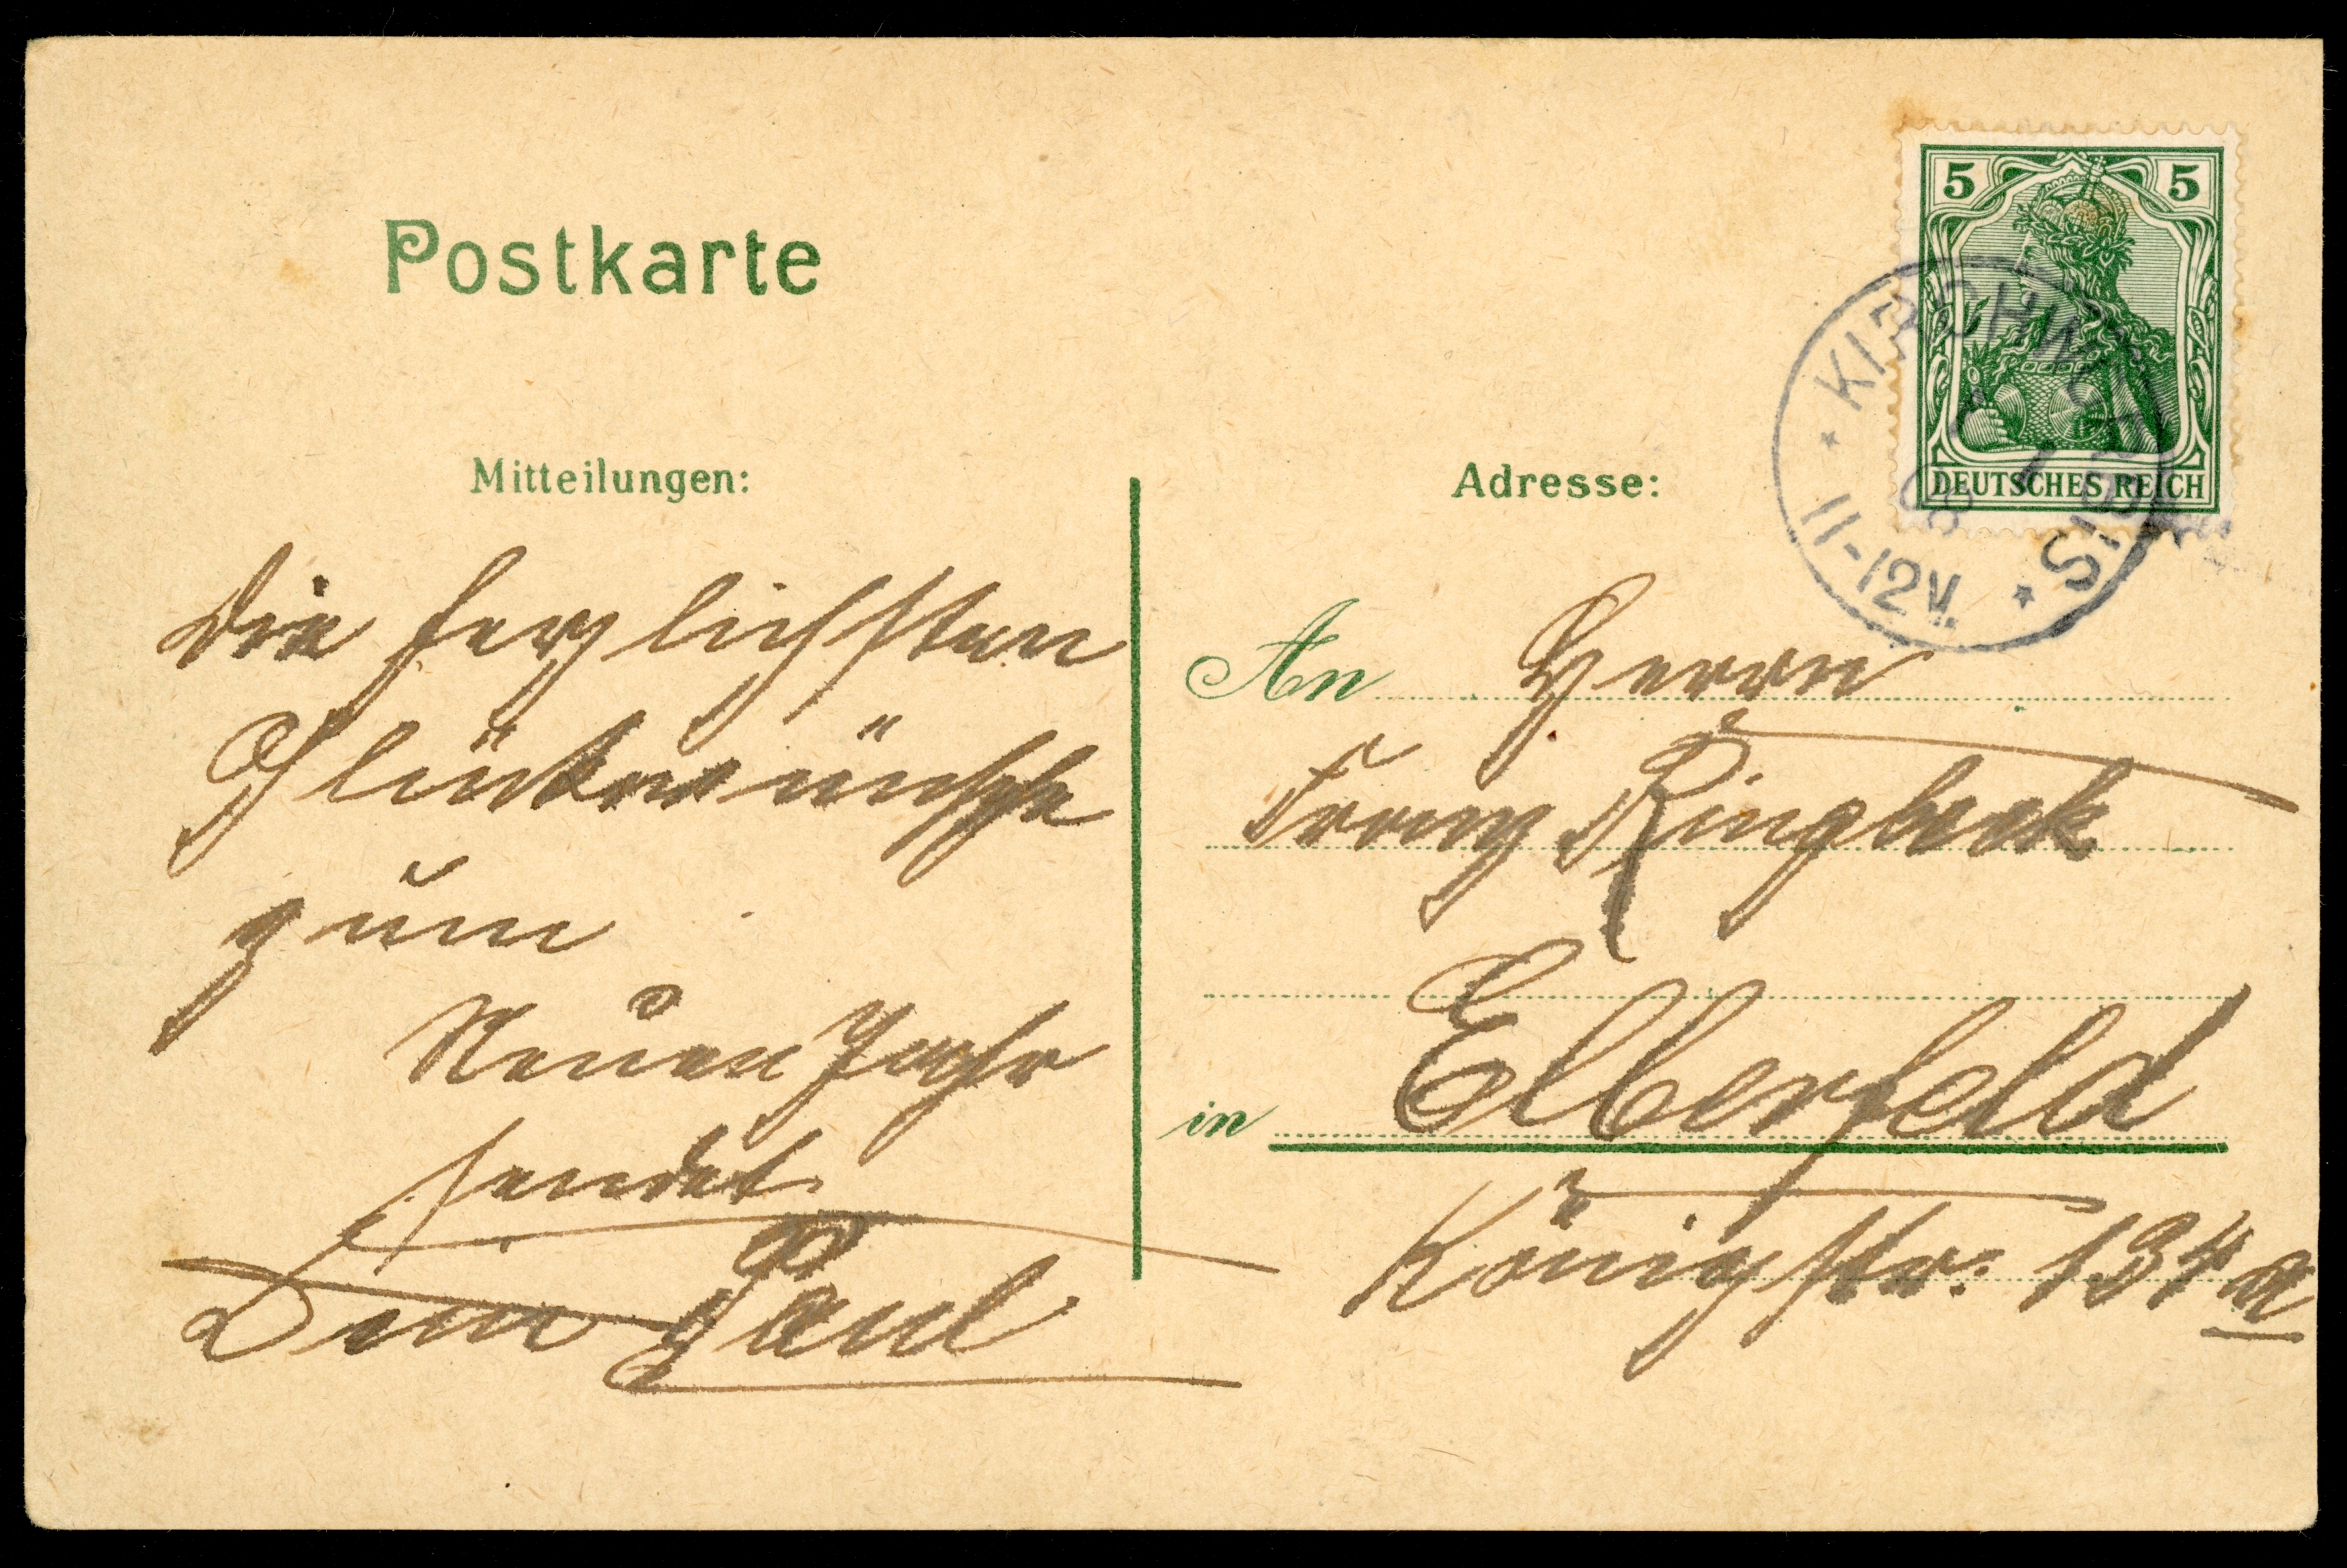 Postkarte
5 5
DEUTSCHES REICH
11-12V.
Mitteilungen:
Die herzlichsten
Glückwünsche
zum
Neuen Jahr
sendet
Dein Paul
Adresse:
An Herrn
Franz Ringbeck
in Elberfeld
Königstr: 134a